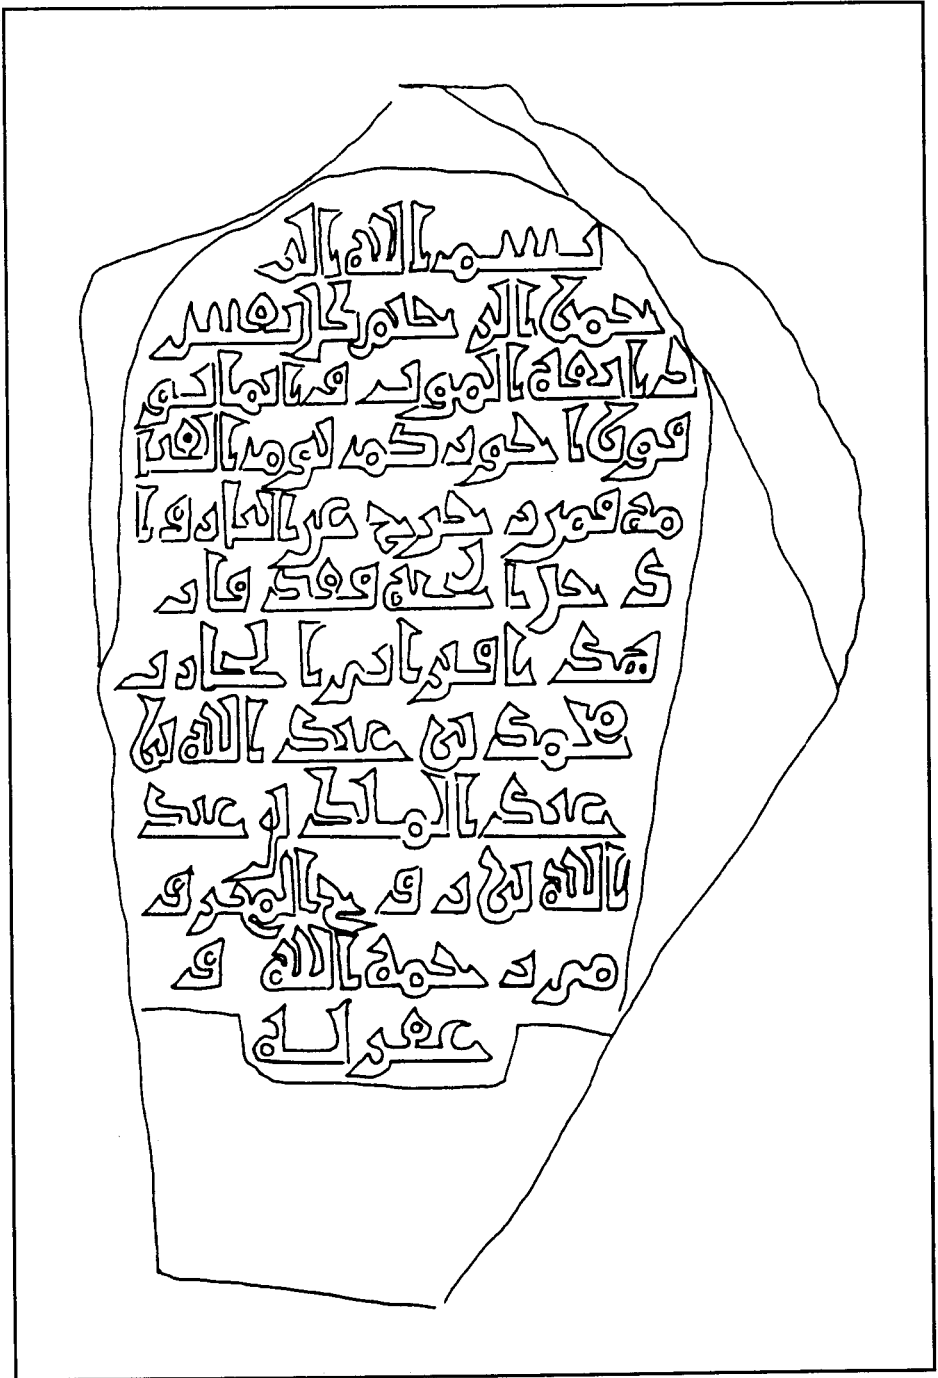 بسم الله الر
حمن الرحيم كل نفس
ذائقة الموت وانما تو
فون اجوركم يوم القيا
مة فمن زحزح عن النار وا
دخل الجنة فقد فاز
هذا قبر الحارث
محمد بن عبد الله بن
عبد الملك بن عبد
الله بن
رحمة الله و
غفر له